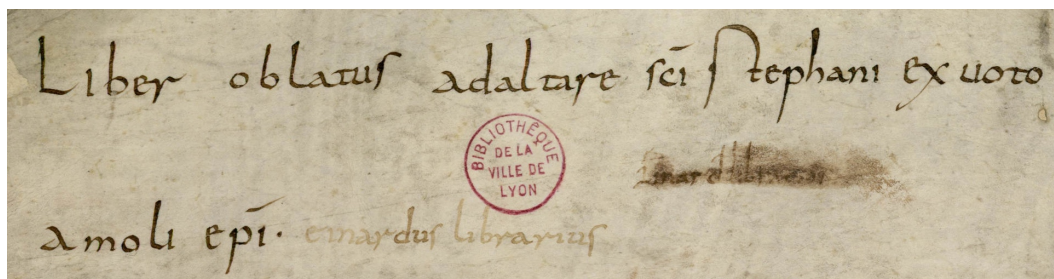 Liber oblatus adaltare sc̄i stephani ex uoto
BIBLIOTHÈQUE
DE LA
VILLE DE
LYON
amoli ep̄i· emardus librarius